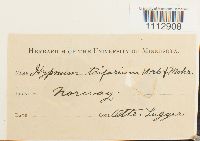 1112908
HERBARIUM OF THE UNIVERSITY OF MINNESOTA.
NAME Hypnum trifarium Web & Mohr.
Norway
DATE COL. Otto Lugger